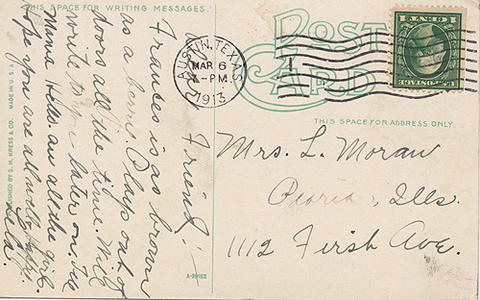 THIS SPACE FOR WRITING MESSAGES.
Dear Friend:-
Frances is as brown
as a berrie Plays out of
doors all the time. Will
write later on.
Mama Hellen an all the girls
Hope you are all well
PUBLISHED BY S. H. KRESS & CO. MADE IN U.S.A.
A-29162
POST
CARD
AUSTIN, TEXAS
MAR 6
-PM
1913
1
THIS SPACE FOR ADDRESS ONLY
Mrs. L. Moran
Peoria, Ills.
1112 First Ave.